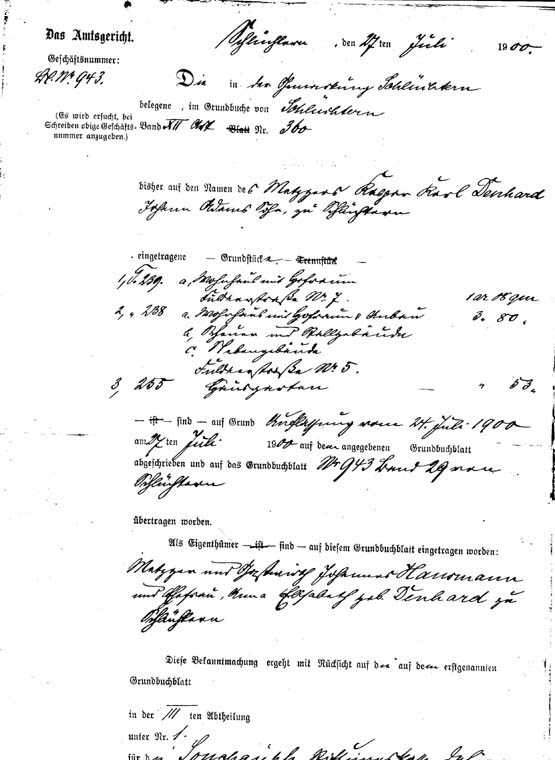 Das Amtsgericht.
Geschäftsnummer:
Nr. 943.
(Es wird ersucht, bei
Schreiben obige Geschäfts-
nummer anzugeben.)
Schlüchtern, den 27ten Juli 1900.
Die in der Gemarkung Schlüchtern
belegene, im Grundbuche von Schlüchtern
Band XII Art Blatt Nr. 360
bisher auf den Namen des Metzgers Kaspar Karl Denhard
Johann Adams Sohn, zu Schlüchtern
eingetragene — Grundstücke — Trennstück —
1, 239. a, Wohnhaus mit Hofraum
Fulderstraße Nr. 7. 1 ar 08 qm
2, „ 238 a. Wohnhaus mit Hofraum & Anbau 3 „ 80 „
b, Scheuer und Stallgebäude
c. Nebengebäude
Fulderstraße Nr. 5.
3, 255 Hausgarten — „ 53 „
— ist — sind — auf Grund Auflassung vom 24. Juli 1900
am 27ten Juli 1900 auf dem angegebenen Grundbuchblatt
abgeschrieben und auf das Grundbuchblatt Nr 943 Band 29 von
Schlüchtern
übertragen worden.
Als Eigenthümer — ist — sind — auf diesem Grundbuchblatt eingetragen worden:
Metzger und Gastwirth Johannes Hausmann
und Ehefrau, Anna Elisabeth geb. Denhard zu
Schlüchtern
Diese Bekanntmachung ergeht mit Rücksicht auf auf dem erstgenannten
Grundbuchblatt
in der III ten Abtheilung
unter Nr. 1.
für